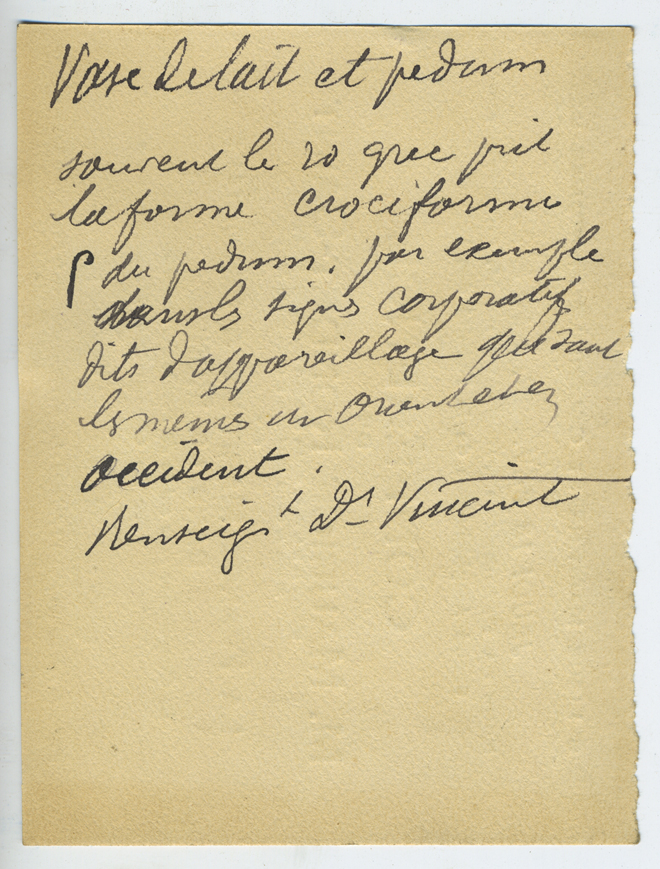 Vase de lait et pedum
souvent le ro grec prit
la forme crociforme
ρ du pedum. par exemple
dans ls signs corporatifs
dits d'appareillage qui sont
ls mêmes en Orient et en
occident.
Renseigt Dr Vincent